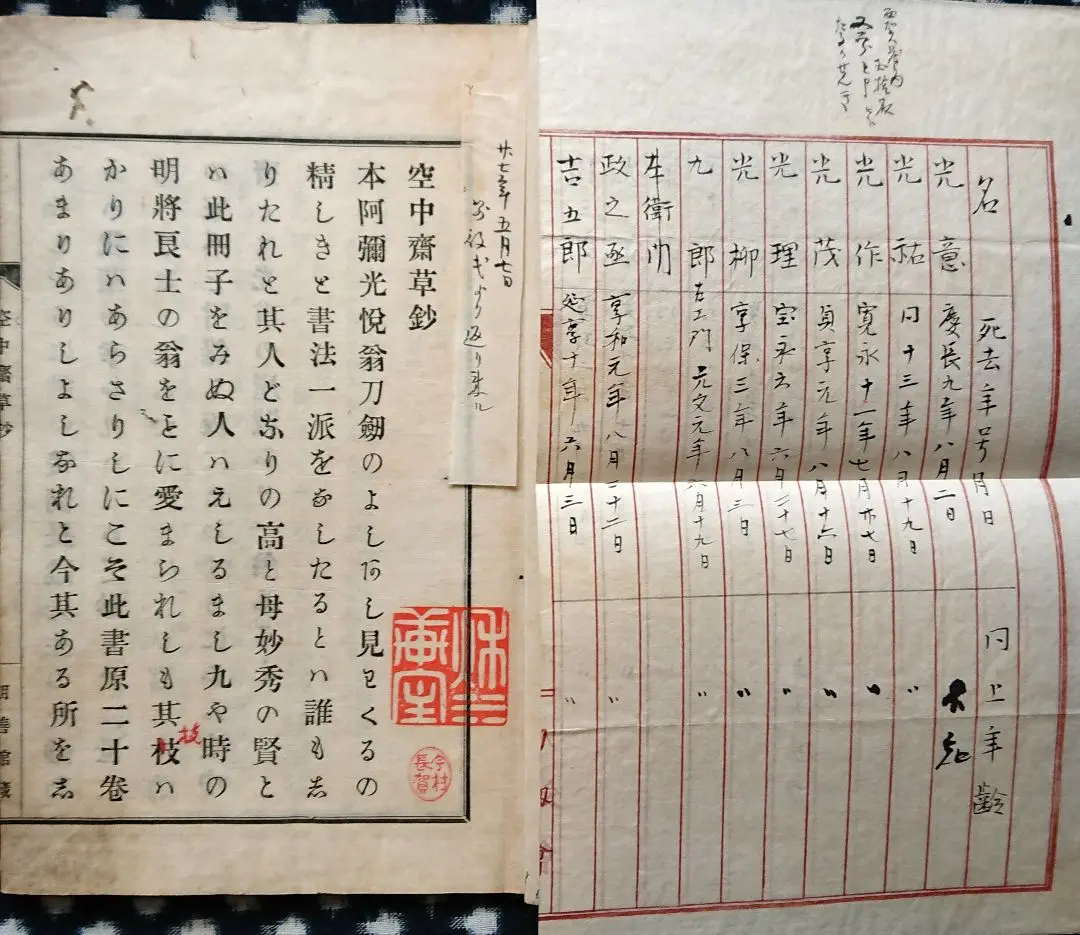 名　死去年号月日　同上年齢
光意　慶長九年八月二日　不知
光祐　同十三年八月十九日　〃
光作　寛永十一年七月廿七日　〃
光茂　貞享元年八月十六日　〃
光理　宝永六年六月二十七日　〃
光柳　享保三年八月三日　〃
九郎　元文元年六月十九日　〃
政之丞　享和元年八月二十二日　〃
吉五郎　延享十年六月三日　〃
廿七年五月七日
より返り来ル
空中齋草鈔
本阿彌光悅翁刀劒のよしあし見わくるの
精しきと書法一派をなしたるとハ誰も志
りたれと其人となりの高と母妙秀の賢と
ハ此冊子をみぬ人ハえしるまし九や時の
明將良士の翁をことに愛まられしも其枝ハ
技
かりにハあらさりしにこそ此書原二十卷
あまりありしよしなれと今其ある所を志
空中齋草鈔
今村長賀